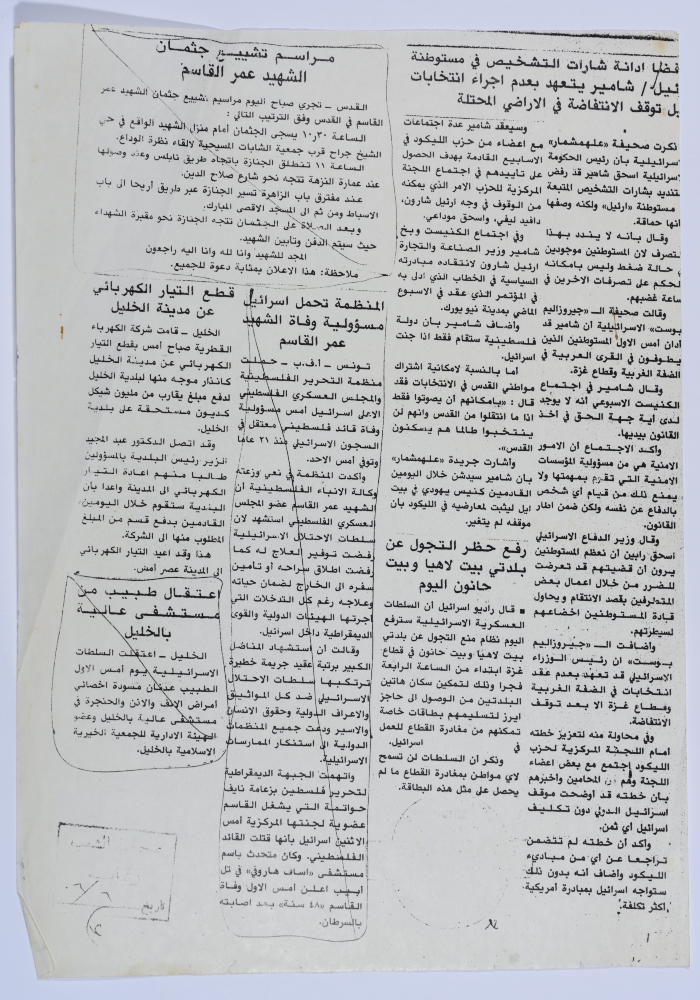 فضا ادانة شارات التشخيص في مستوطنة
ئيل/ شامير يتعهد بعدم اجراء انتخابات
بل توقف الانتفاضة في الاراضي المحتلة
ذكرت صحيفة «علهمشمار»
سرائيلية بأن رئيس الحكومة
سرائيلية اسحق شامير قد رفض
تنديد بشارات التشخيص المتبعة
مستوطنة «ارئيل» ولكنه وصفها
نها حماقة.
وقال بأنه لا يندد بهذا
تصرف لان المستوطنين موجودين
ي حالة ضغط وليس بامكانه
لحكم على تصرفات الاخرين في
ساعة غضبهم.
وقالت صحيفة الـ «جيروزاليم
بوست» الاسرائيلية أن شامير قد
أدان أمس الاول المستوطنين الذين
يطوفون في القرى العربية في
الضفة الغربية وقطاع غزة.
وقال شامير في اجتماع
الكنيست الاسبوعي انه لا يوجد
لدى أية جهة الحق في أخذ
القانون بيديها.
وأكد الاجتماع أن الامور
الامنية هي من مسؤولية المؤسسات
الامنية التي تقوم بمهمتها ولا
يمنع ذلك من قيام أي شخص
بالدفاع عن نفسه ولكن ضمن اطار
القانون.
وقال وزير الدفاع الاسرائيلي
اسحق رابين أن نعظم المستوطنين
يرون أن قضيتهم قد تعرضت
للضرر من خلال اعمال بعض
المتطرفين بقصد الانتقام ويحاول
قادة المستوطنين اخضاعهم
لسيطرتهم.
وأضافت الـ «جيروزاليم
بوست» ان رئيس الوزراء
الاسرائيلي قد تعهد بعدم عقد
انتخابات في الضفة الغربية
وقطاع غزة الا بعد توقف
الانتفاضة.
وفي محاولة منه لتعزيز خطته
أمام اللجنة المركزية لحزب
الليكود اجتمع مع بعض اعضاء
اللجنة وهم من المحامين واخبرهم
بأن خطته قد أوضحت موقف
اسرائيل الدولي دون تكليف
اسرائيل أي ثمن.
وأكد أن خطته لم تتضمن
تراجعا عن أي من مباديء
الليكود وأضاف أنه بدون ذلك
ستواجه اسرائيل بمبادرة أمريكية
أكثر تكلفة.
وسيعقد شامير عدة اجتماعات
مع اعضاء من حزب الليكود في
الاسابيع القادمة بهدف الحصول
على تأييدهم في اجتماع اللجنة
المركزية للحزب الامر الذي يمكنه
من الوقوف في وجه اريئل شارون،
دافيد ليفي، واسحق موداعي.
وفي اجتماع الكنيست وبخ
شامير وزير الصناعة والتجارة
ارئيل شارون لانتقاده مبادرته
السياسية في الخطاب الذي ادلى به
في المؤتمر الذي عقد في الاسبوع
الماضي بمدينة نيويورك.
وأضاف شامير بأن دولة
فلسطينية ستقام فقط اذا جنت
اسرائيل.
أما بالنسبة لامكانية اشتراك
مواطني القدس في الانتخابات فقد
قال: «بامكانهم أن يصوتوا فقط
اذا ما انتقلوا من القدس وانهم لن
ينتخبوا طالما هم يسكنون
القدس».
وأشارت جريدة «علهمشمار»
بأن شامير سيدشن خلال اليومين
القادمين كنيس يهودي في بيت
ايل ليثبت لمعارضيه في الليكود بأن
موقفه لم يتغير.
رفع حظر التجول عن
بلدتي بيت لاهيا وبيت
حانون اليوم
■ قال راديو اسرائيل أن السلطات
العسكرية الاسرائيلية سترفع
اليوم نظام منع التجول عن بلدتي
بيت لاهيا وبيت حانون في قطاع
غزة ابتداء من الساعة الرابعة
فجرا وذلك لتمكين سكان هاتين
البلدتين من الوصول الى حاجز
ايرز لتسليمهم بطاقات خاصة
تمكنهم من مغادرة القطاع للعمل
في اسرائيل.
وذكر أن السلطات لن تسمح
لاي مواطن بمغادرة القطاع ما لم
يحصل على مثل هذه البطاقة.
مراسم تشييع جثمان
الشهيد عمر القاسم
القدس ـ تجري صباح اليوم مراسيم تشييع جثمان الشهيد عمر
القاسم في القدس وفق الترتيب التالي:
الساعة ١٠ر٣٠ يسجى الجثمان أمام منزل الشهيد الواقع في حي
الشيخ جراح قرب جمعية الشابات المسيحية لالقاء نظرة الوداع.
الساعة ١١ تنطلق الجنازة باتجاه طريق نابلس وعند وصولها
عند عمارة النزهة تتجه نحو شارع صلاح الدين.
عند مفترق باب الزاهرة تسير الجنازة عبر طريق أريحا الى باب
الاسباط ومن ثم الى المسجد الاقصى المبارك.
وبعد الصلاة على الجثمان تتجه الجنازة نحو مقبرة الشهداء
حيث سيتم الدفن وتأبين الشهيد.
المجد للشهيد وانا لله وانا اليه راجعون
ملاحظة: هذا الاعلان بمثابة دعوة للجميع.
المنظمة تحمل اسرائيل
مسؤولية وفاة الشهيد
عمر القاسم
تونس ـ أ.ف.ب ـ حملت
منظمة التحرير الفلسطينية
والمجلس العسكري الفلسطيني
الاعلى اسرائيل امس مسؤولية
وفاة قائد فلسطيني معتقل في
السجون الاسرائيلية منذ ٢١ عاما
وتوفي أمس الاحد.
وأكدت المنظمة في نعي وزعته
وكالة الانباء الفلسطينية أن
الشهيد عمر القاسم عضو المجلس
العسكري الفلسطيني استشهد لان
سلطات الاحتلال الاسرائيلية
رفضت توفير العلاج له كما
رفضت اطلاق سراحه أو تأمين
سفره الى الخارج لضمان حياته
وعلاجه رغم كل التدخلات التي
أجرتها الهيئات الدولية والقوى
الديمقراطية داخل اسرائيل.
وقالت أن استشهاد المناضل
الكبير برتبة عقيد جريمة خطيرة
ترتكبها سلطات الاحتلال
الاسرائيلي ضد كل المواثيق
والاعراف الدولية وحقوق الانسان
والاسير ودعت جميع المنظمات
الدولية الى استنكار الممارسات
الاسرائيلية.
واتهمت الجبهة الديمقراطية
لتحرير فلسطين بزعامة نايف
حواتمة التي يشغل القاسم
عضوية لجنتها المركزية أمس
الاثنين اسرائيل بأنها قتلت القائد
الفلسطيني. وكان متحدث باسم
مستشفى «أساف هاروفي» في تل
أبيب اعلن أمس الاول وفاة
القاسم «٤٨ سنة» بعد اصابته
بالسرطان.
قطع التيار الكهربائي
عن مدينة الخليل
الخليل ـ قامت شركة الكهرباء
القطرية صباح امس بقطع التيار
الكهربائي عن مدينة الخليل
كانذار موجه منها لبلدية الخليل
لدفع مبلغ يقارب من مليون شيكل
كديون مستحقة على بلدية
الخليل.
وقد اتصل الدكتور عبد المجيد
الزير رئيس البلدية بالمسؤولين
طالبا منهم اعادة التيار
الكهربائي الى المدينة واعدا بأن
البلدية ستقوم خلال اليومين
القادمين بدفع قسم من المبلغ
المطلوب منها الى الشركة.
هذا وقد اعيد التيار الكهربائي
الى المدينة عصر أمس.
اعتقال طبيب من
مستشفى عالية
بالخليل
الخليل ـ اعتقلت السلطات
الاسرائيلية يوم أمس الاول
الطبيب عدنان مسودة اخصائي
امراض الانف والاذن والحنجرة في
مستشفى عالية بالخليل وعضو
الهيئة الادارية للجمعية الخيرية
الاسلامية بالخليل.
الشعب
تاريخ ٦/٦